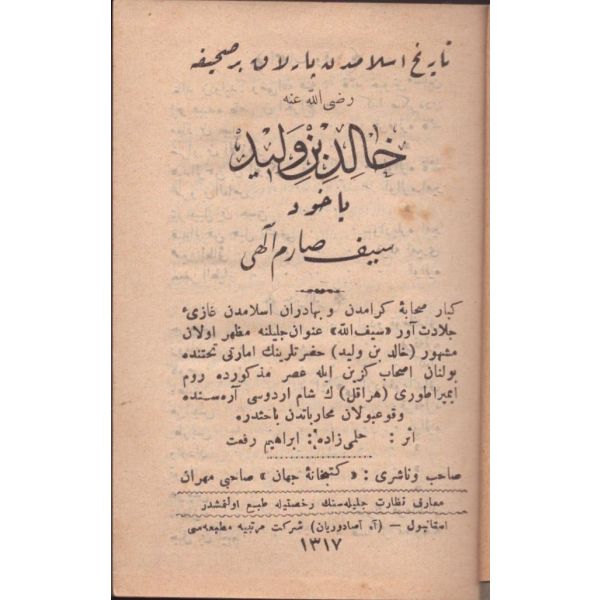 تاريخ اسلامدن پارلاق بر صحيفه
رضى الله عنه
خالد بن وليد
ياخود
سيف صارم آلهى
كبار صحابۀ كرامدن و بهادران اسلامدن غازئ
جلادت آور «سيف الله» عنوان جليلنه مظهر اولان
مشهور (خالد بن وليد) حضرتلرينك امارتى تحتنده
بولنان اصحاب كزين ايله عصر مذكورده روم
ايمپراطورى (هراقل) ك شام اردوسى آره سنده
وقوعبولان محارباتدن باحثدره
اثر : حلمى زاده : ابراهيم رفعت
صاحب و ناشرى : « كتبخانۀ جهان » صاحبى مهران
معارف نظارت جليله سنك رخصتيله طبع اولنمشدر
استانبول — (آ. آصادوريان) شركت مرتبيه مطبعه سى
١٣١٧